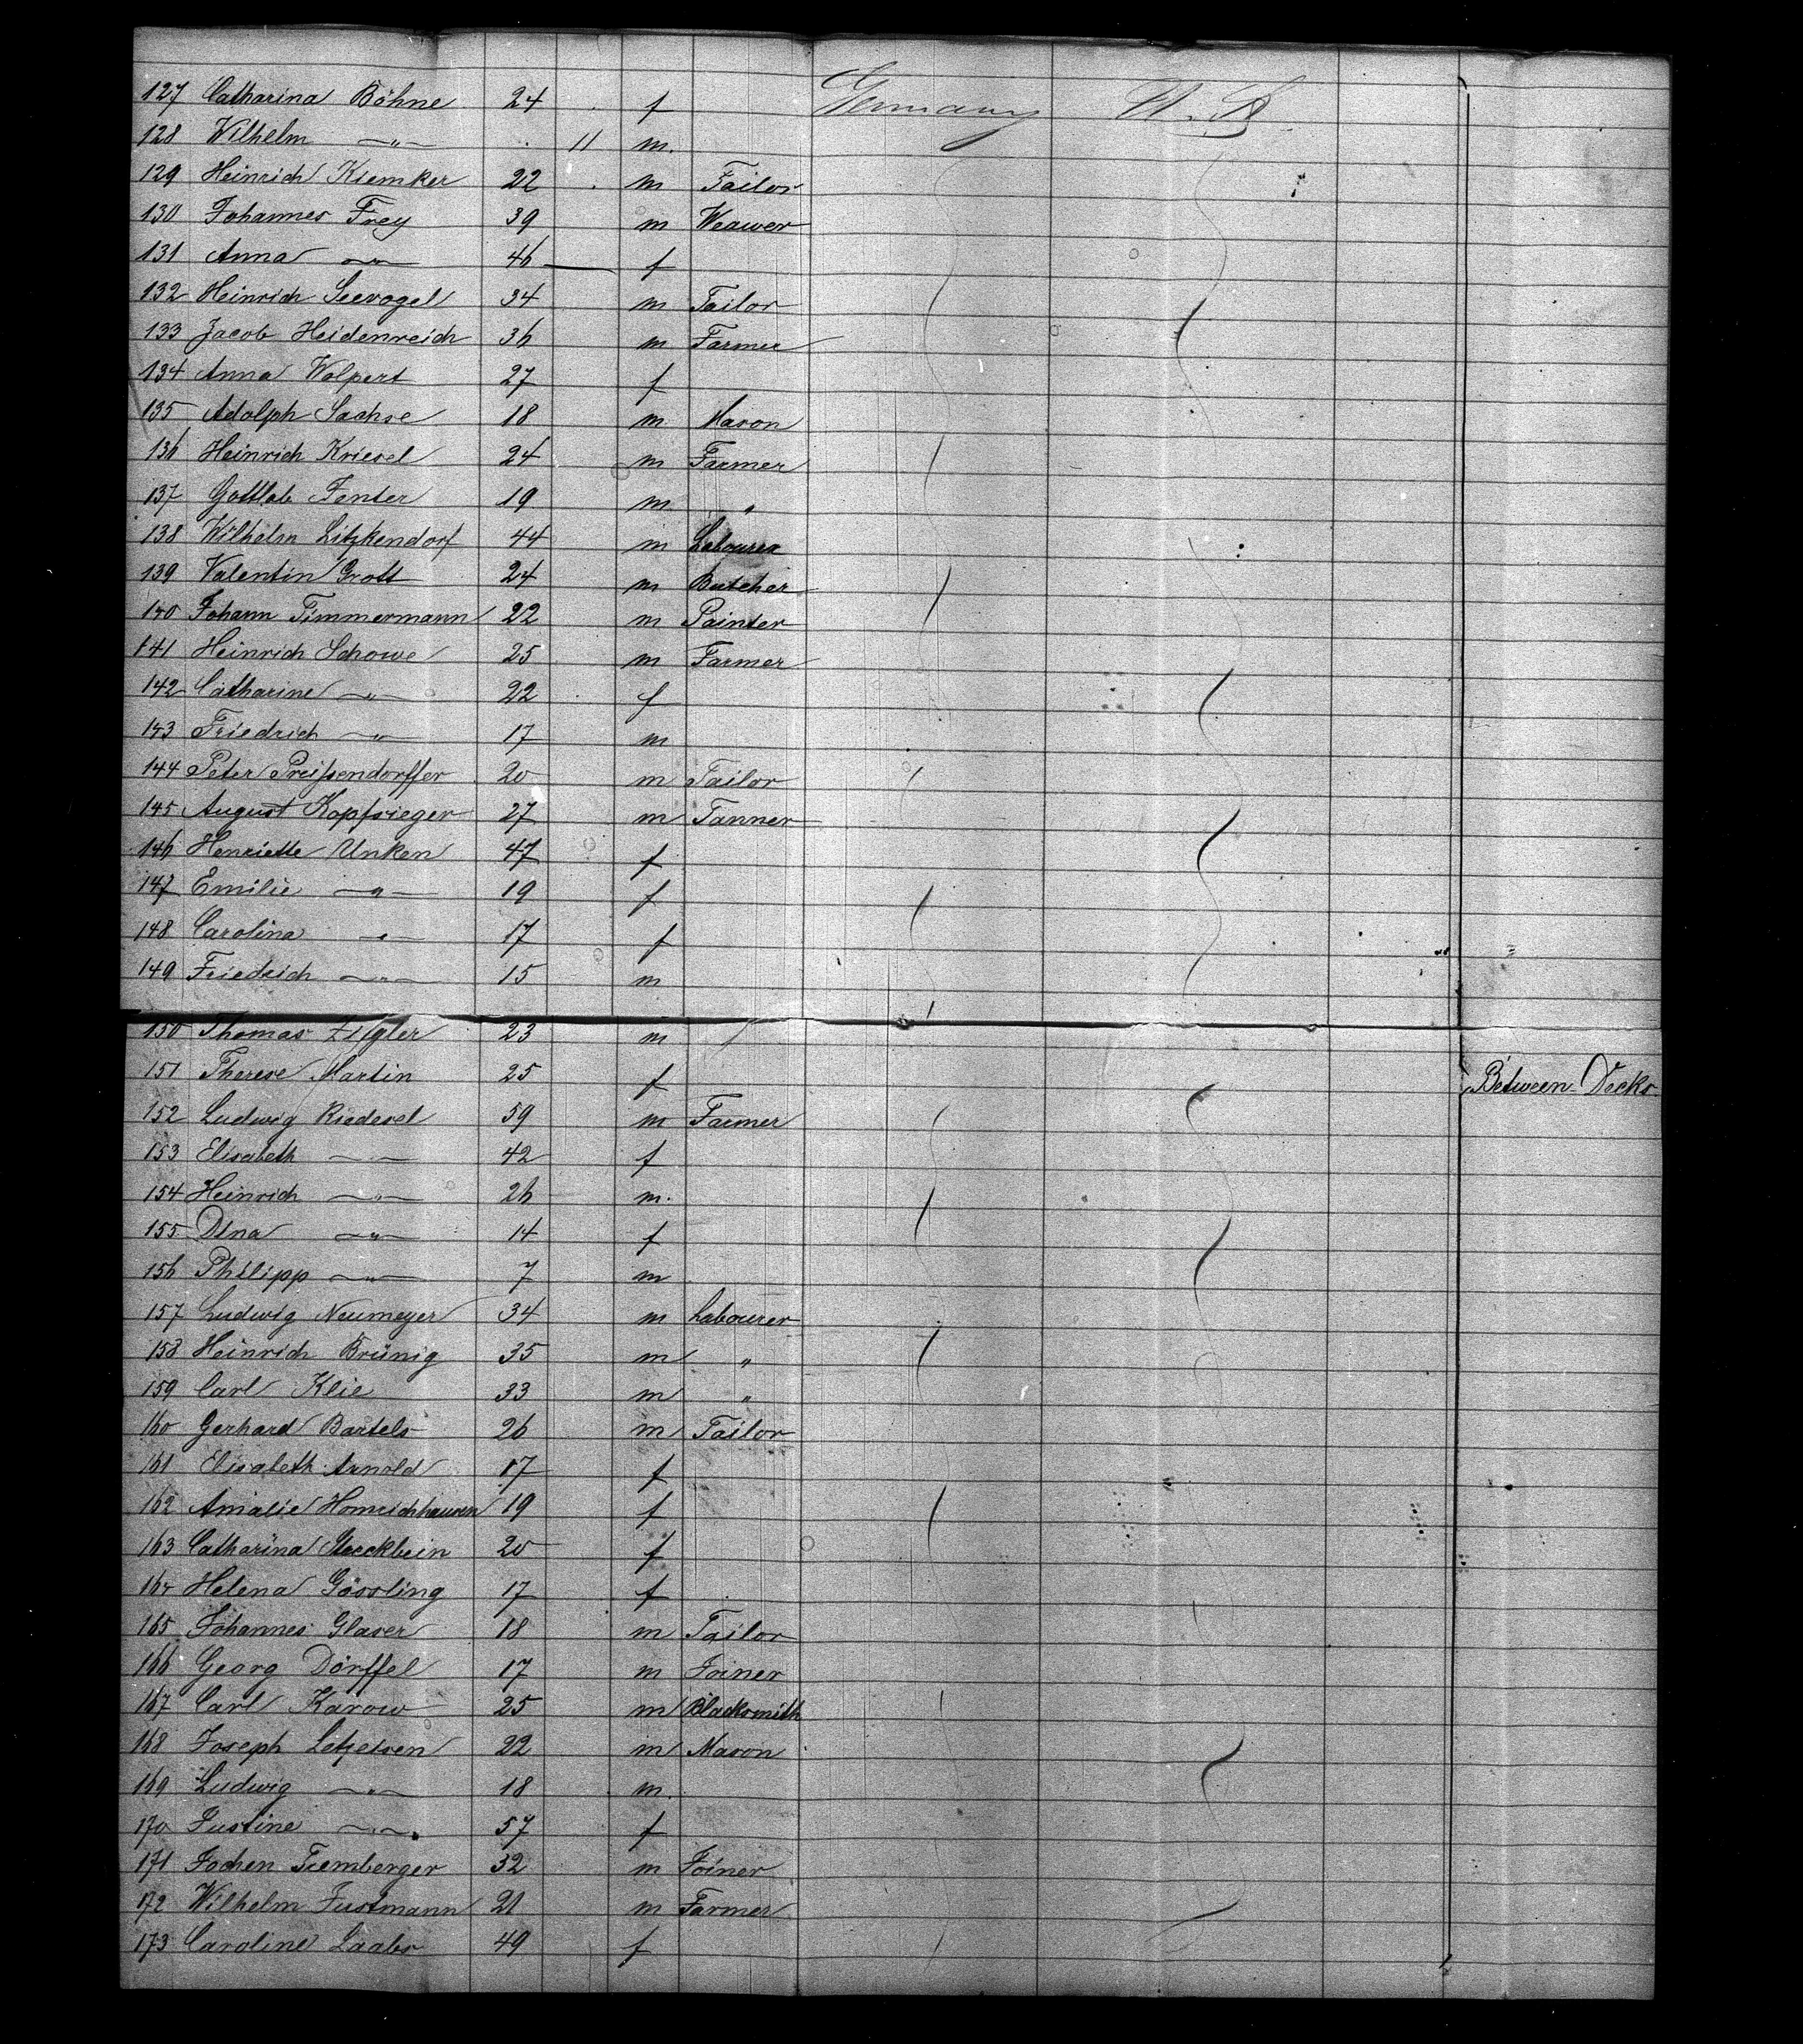 127 Catharina Böhne 24 f Germany U. S.
128 Wilhelm -"- 11 m.
129 Heinrich Kiemker 22 m Tailor
130 Johannes Frey 39 m Weawer
131 Anna -"- 46 f
132 Heinrich Seevogel 34 m Tailor
133 Jacob Heidenreich 36 m Farmer
134 Anna Volpert 27 f
135 Adolph Sachse 18 m Mason
136 Heinrich Kriesel 24 m Farmer
137 Gottlob Fenter 19 m "
138 Wilhelm Litzkendorf 44 m Labourer
139 Valentin Grott 24 m Butcher
140 Johann Timmermann 22 m Painter
141 Heinrich Schowe 25 m Farmer
142 Catharine -"- 22 f
143 Friedrich -"- 17 m
144 Peter Preißendorffer 20 m Tailor
145 August Kopfsieger 27 m Tanner
146 Henriette Unken 47 f
147 Emilie -"- 19 f
148 Carolina -"- 17 f
149 Friedrich -"- 15 m
150 Thomas Zigler 23 m
151 Therese Martin 25 f Between-Decks
152 Ludwig Riedesel 59 m Farmer
153 Elisabeth -"- 42 f
154 Heinrich -"- 26 m.
155 Dina -"- 14 f
156 Philipp -"- 7 m
157 Ludwig Neumeyer 34 m Labourer
158 Heinrich Brünig 35 m "
159 Carl Klie 33 m "
160 Gerhard Bartels 26 m Tailor
161 Elisabeth Arnold 17 f
162 Amalie Homrichhausen 19 f
163 Catharina 20 f
164 Helena Gössling 17 f
165 Johannes Glaser 18 m Tailor
166 Georg Dörffel 17 m Joiner
167 Carl Karow 25 m Blacksmith
168 Joseph Letzeisen 22 m Mason
169 Ludwig -"- 18 m.
170 Justine -"- 57 f
171 Jochen 32 m Joiner
172 Wilhelm Justmann 21 m Farmer
173 Caroline Laabs 49 f